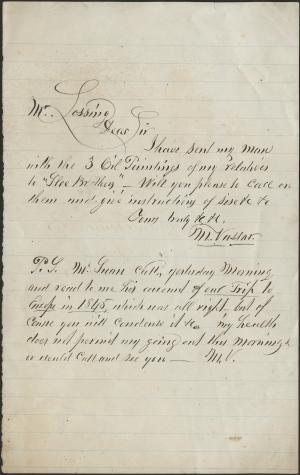 Mr. Lossing
Dear Sir
I have sent my man
with the 3 Oil Paintings of my relatives
to "Sloe Brothers" – Will you please to call on
them and give instructions of size &c &c
Yours truly &c &c.
M. Vassar.
P.S. Mr Guan Call'd yesterday Morning
and read to me his account of our Trip to
Europe in 1845, which was all right, but of
Course you will condense it &c. my health
does not permit my going out this Morning &
or would Call and see you — M.V.